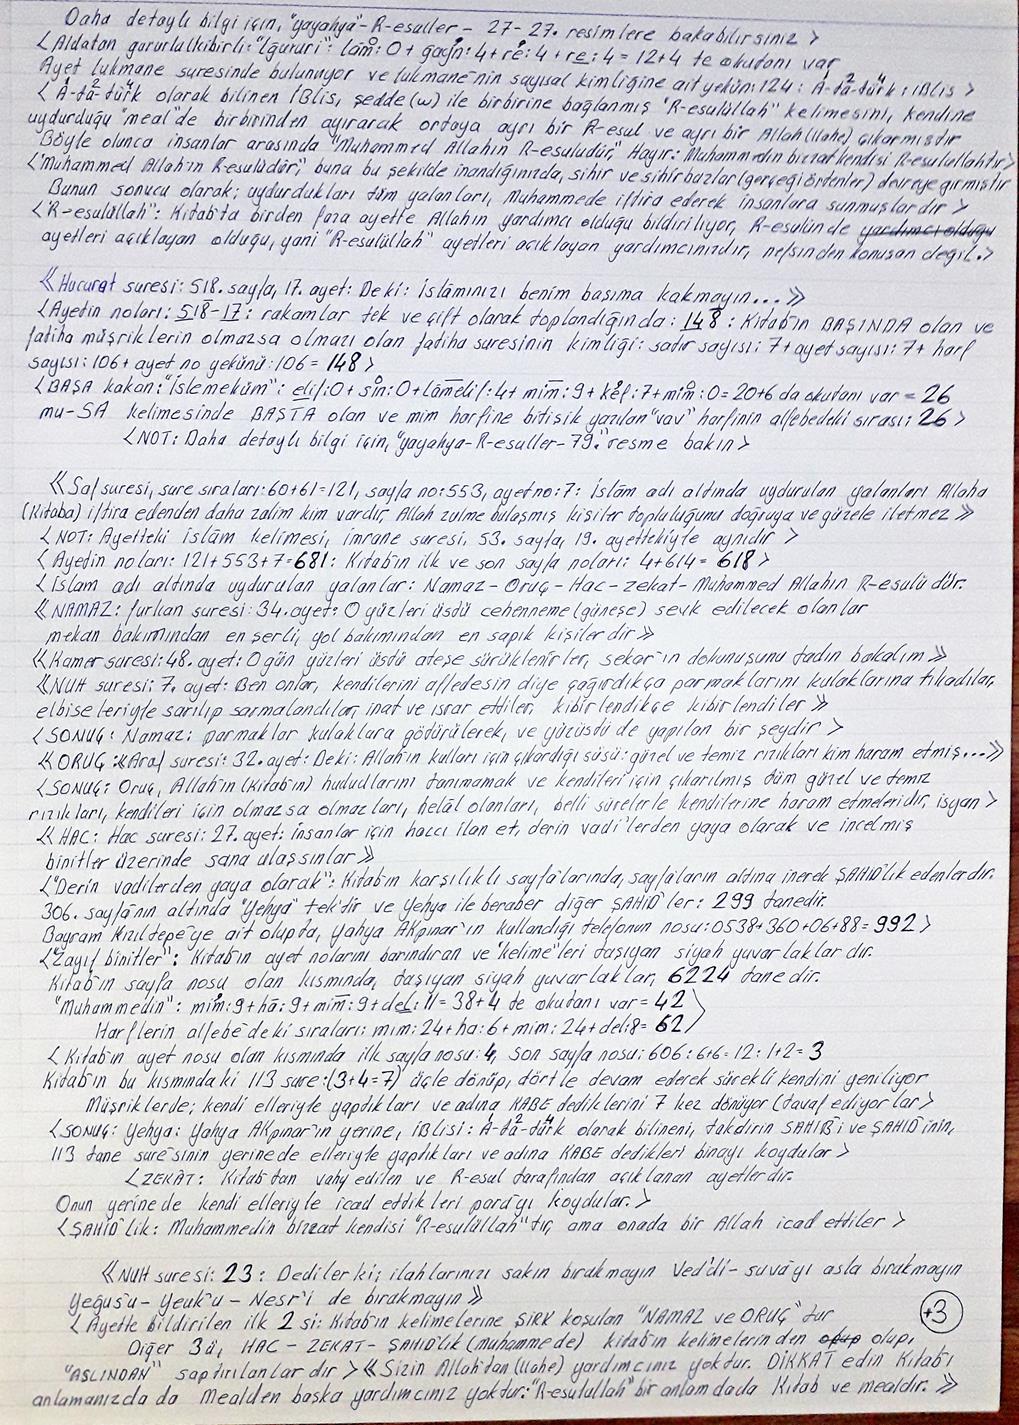 Daha detaylı bilgi için, "yayahya"-R-esuller - 27-27. resimlere bakabilirsiniz >
< Aldatan gururlu(kibirli: "lgururi": lâm: 0 + gayn: 4 + re: 4 + re: 4 = 12+4 te okutanı var
Ayet lukmane suresinde bulunuyor ve lukmane'nin sayısal kimliğine ait yekün: 124: A-ta2-türk4: iBLis >
< A-ta2-türk4 olarak bilinen iBLis, şedde (w) ile birbirine bağlanmış "R-esulüllah" kelimesini, kendine
uydurduğu "meal"de birbirinden ayırarak ortaya ayrı bir R-esul ve ayrı bir Allah (ilahe) çıkarmıştır
Böyle olunca insanlar arasında "Muhammed Allahın R-esuludür," Hayır: Muhammedin bizzat kendisi R-esulullahtır >
< "Muhammed Allah'ın R-esulüdür," buna bu şekilde inandığınızda, sihir ve sihirbazlar (gerçeği örtenler) devreye girmiştir
Bunun sonucu olarak; uydurdukları tüm yalanları, Muhammede iftira ederek insanlara sunmuşlardır >
< "R-esulüllah": Kitab'ta birden faza ayette Allahın yardımcı olduğu bildiriliyor, R-esulün de yardımcı olduğu
ayetleri açıklayan olduğu, yani "R-esulüllah" ayetleri açıklayan yardımcınızdır, nefsinden konuşan değil. >
《Hucurat suresi: 518. sayfa, 17. ayet: Deki: islâmınızı benim başıma kakmayın...》
< Ayetin noları: 518-17: rakamlar tek ve çift olarak toplandığında: 148: Kitab'ın BAŞINDA olan ve
fatiha müşriklerin olmazsa olmazı olan fatiha suresinin kimliği: satır sayısı: 7 + ayet sayısı: 7 + harf
sayısı: 106 + ayet no yekünü: 106 = 148 >
< BAŞA kakan: "islemeküm": elif: 0 + sin: 0 + lâmelif: 4 + mim: 9 + kêf: 7 + mim: 0 = 20+6 da okutanı var = 26
mu-SA kelimesinde BAŞTA olan ve mim harfine bitişik yazılan "vav" harfinin alfebedeki sırası: 26 >
< NOT: Daha detaylı bilgi için, "yayahya-R-esuller-79." resme bakın >
《Saf suresi, sure sıraları: 60+61=121, sayfa no: 553, ayet no: 7: islâm adı altında uydurulan yalanları Allaha
(kitaba) iftira edenden daha zalim kim vardır, Allah zulme bulaşmış kişiler topluluğunu doğruya ve güzele iletmez》
< NOT: Ayetteki islâm kelimesi, imrane suresi, 53. sayfa, 19. ayettekiyle aynıdır >
< Ayetin noları: 121+553+7=681: Kitab'ın ilk ve son sayfa noları: 4+614= 618 >
< islam adı altında uydurulan yalanlar: Namaz - Oruç - Hac - zekat - Muhammed Allahın R-esulü dür.
《NAMAZ: furkan suresi: 34. ayet: O yüzleri üstü cehenneme (güneşe) sevk edilecek olanlar
mekan bakımından en şerli, yol bakımından en sapık kişilerdir》
《Kamer suresi: 48. ayet: O gün yüzleri üstü ateşe sürüklenirler, sekar'ın dokunuşunu tadın bakalım》
《NUH suresi: 7. ayet: Ben onları, kendilerini affedesin diye çağırdıkça parmaklarını kulaklarına tıkadılar,
elbiseleriyle sarılıp sarmalandılar, inat ve ısrar ettiler, kibirlendikçe kibirlendiler》
< SONUÇ: Namaz: parmaklar kulaklara götürülerek, ve yüzüstü de yapılan bir şeydir >
< ORUÇ:《Araf suresi: 32. ayet: Deki: Allah'ın kulları için çıkardığı süsü: güzel ve temiz rızıkları kim haram etmiş...》
< SONUÇ: Oruç, Allah'ın (Kitab'ın) hudutlarını tanımamak ve kendileri için çıkarılmış tüm güzel ve temiz
rızıkları, kendileri için olmazsa olmazları, helâl olanları, belli sürelerle kendilerine haram etmeleridir, isyan >
《HAC: Hac suresi: 27. ayet: insanlar için haccı ilan et, derin vadi'lerden yaya olarak ve incelmiş
binitler üzerinde sana ulaşsınlar》
< "Derin vadilerden yaya olarak": Kitab'ın karşılıklı sayfalarında, sayfaların altına inerek ŞAHİDlik edenlerdir.
306. sayfanın altında "Yehya" tek'tir ve Yehya ile beraber diğer ŞAHİD'ler: 299 tanedir.
Bayram Kızıltepe'ye ait olup ta, Yahya AKpınar'ın kullandığı telefonun nosu: 0538+360+06+88=992 >
< "Zayıf binitler": Kitab'ın ayet nolarını barındıran ve "kelime"leri taşıyan siyah yuvarlaklardır.
Kitab'ın sayfa nosu olan kısmında, taşıyan siyah yuvarlaklar, 6224 tanedir.
"Muhammedin": mim: 9 + hâ: 9 + mim: 9 + del: 11 = 38+4 te okutanı var = 42
Harflerin alfebe'deki sıraları: mim: 24 + ha: 6 + mim: 24 + del: 8 = 62 >
< Kitab'ın ayet nosu olan kısmında ilk sayfa nosu: 4, son sayfa nosu: 606: 6+6=12: 1+2=3
Kitab'ın bu kısmındaki 113 sure: (3+4=7) üçle dönüp, dörtle devam ederek sürekli kendini yeniliyor
Müşriklerde; kendi elleriyle yaptıkları ve adına KABE dediklerini 7 kez dönüyor (tavaf ediyorlar >
< SONUÇ: Yehya: Yahya AKpınar'ın yerine, iBLisi: A-ta2-türk4 olarak bilineni, takdirin SAHİBi ve ŞAHİDinin,
113 tane suresinin yerinede elleriyle yaptıkları ve adına KABE dedikleri binayı koydular >
< ZEKAT: Kitab'tan vahy edilen ve R-esul tarafından açıklanan ayetlerdir.
Onun yerine de kendi elleriyle icad ettikleri para'yı koydular. >
< ŞAHİD'lik: Muhammedin bizzat kendisi "R-esulüllah"tır, ama onada bir Allah icad ettiler >
《NUH suresi: 23: Dediler ki; ilahlarınızı sakın bırakmayın Ved'di - suva'yı asla bırakmayın
Yeğus'u - Yeuk'u - Nesr'i de bırakmayın》
< Ayette bildirilen ilk 2 si: Kitab'ın kelimelerine ŞİRK koşulan "NAMAZ ve ORUÇ" tur
+3
Diğer 3ü, HAC - ZEKAT - ŞAHİDlik (muhammede) kitab'ın kelimelerinden olup olup,
"ASLINDAN" saptırılanlardır >《Sizin Allah'tan (ilahe) yardımcınız yoktur. DİKKAT edin Kitab'ı
anlamanızda da Mealden başka yardımcınız yoktur: "R-esulullah" bir anlamdada Kitab ve mealdir.》